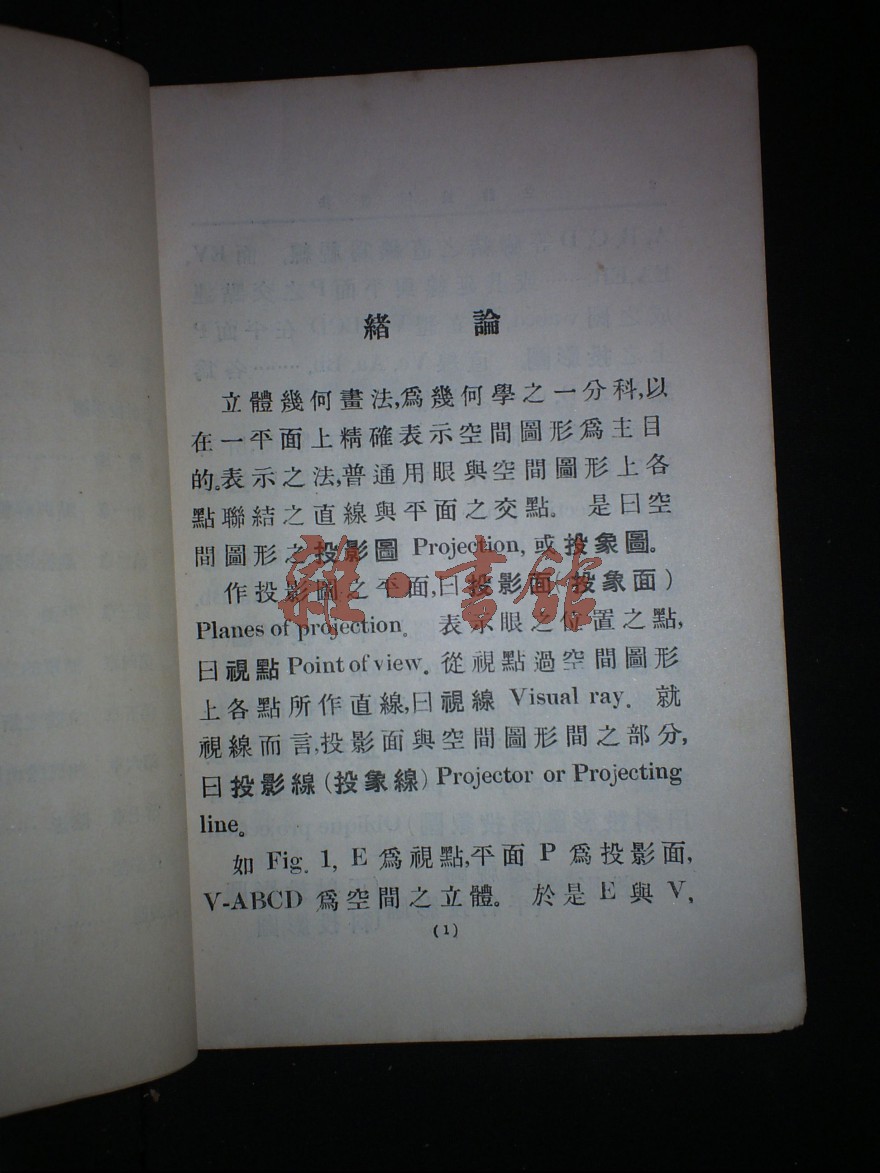 緒論
立體幾何畫法,爲幾何學之一分科,以
在一平面上精確表示空間圖形爲主目
的。表示之法,普通用眼與空間圖形上各
點聯結之直線與平面之交點。 是曰空
間圖形之投影圖 Projection, 或投象圖。
作投影圖之平面,曰投影面(投象面)
Planes of projection. 表示眼之位置之點,
曰視點 Point of view. 從視點過空間圖形
上各點所作直線,曰視線 Visual ray. 就
視線而言,投影面與空間圖形間之部分,
曰投影線(投象線) Projector or Projecting
line。
如 Fig. 1, E 爲視點,平面 P 爲投影面,
V-ABCD 爲空間之立體。 於是 E 與 V,
(1)
雜·書館